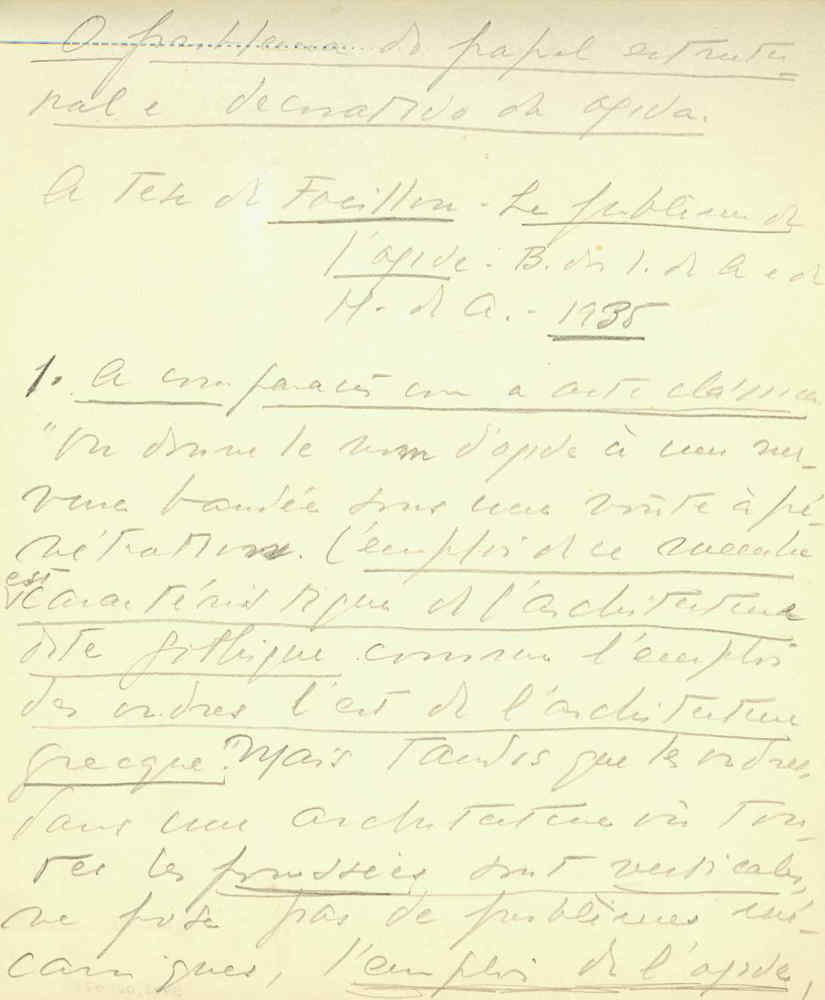 O problema do papel estrutu-
ral e decorativo da ogiva.
A tese de Focillon - Le problème de
l'ogive - B. de l'I. de A e de
H. de A. - 1935
1. A comparação com a arte clássica
"On donne le nom d'ogive à une ner-
vure bandée sous une voûte à pé-
nétration. L'emploi de ce membre
est
caractéristique de l'architecture
dite gothique comme l'emploi
des ordres l'est de l'architecture
grecque". Mais tandis que les ordres,
dans une architecture où tou-
tes les poussées sont verticales,
ne pose pas de problèmes mé-
caniques, l'emploi de l'ogive,